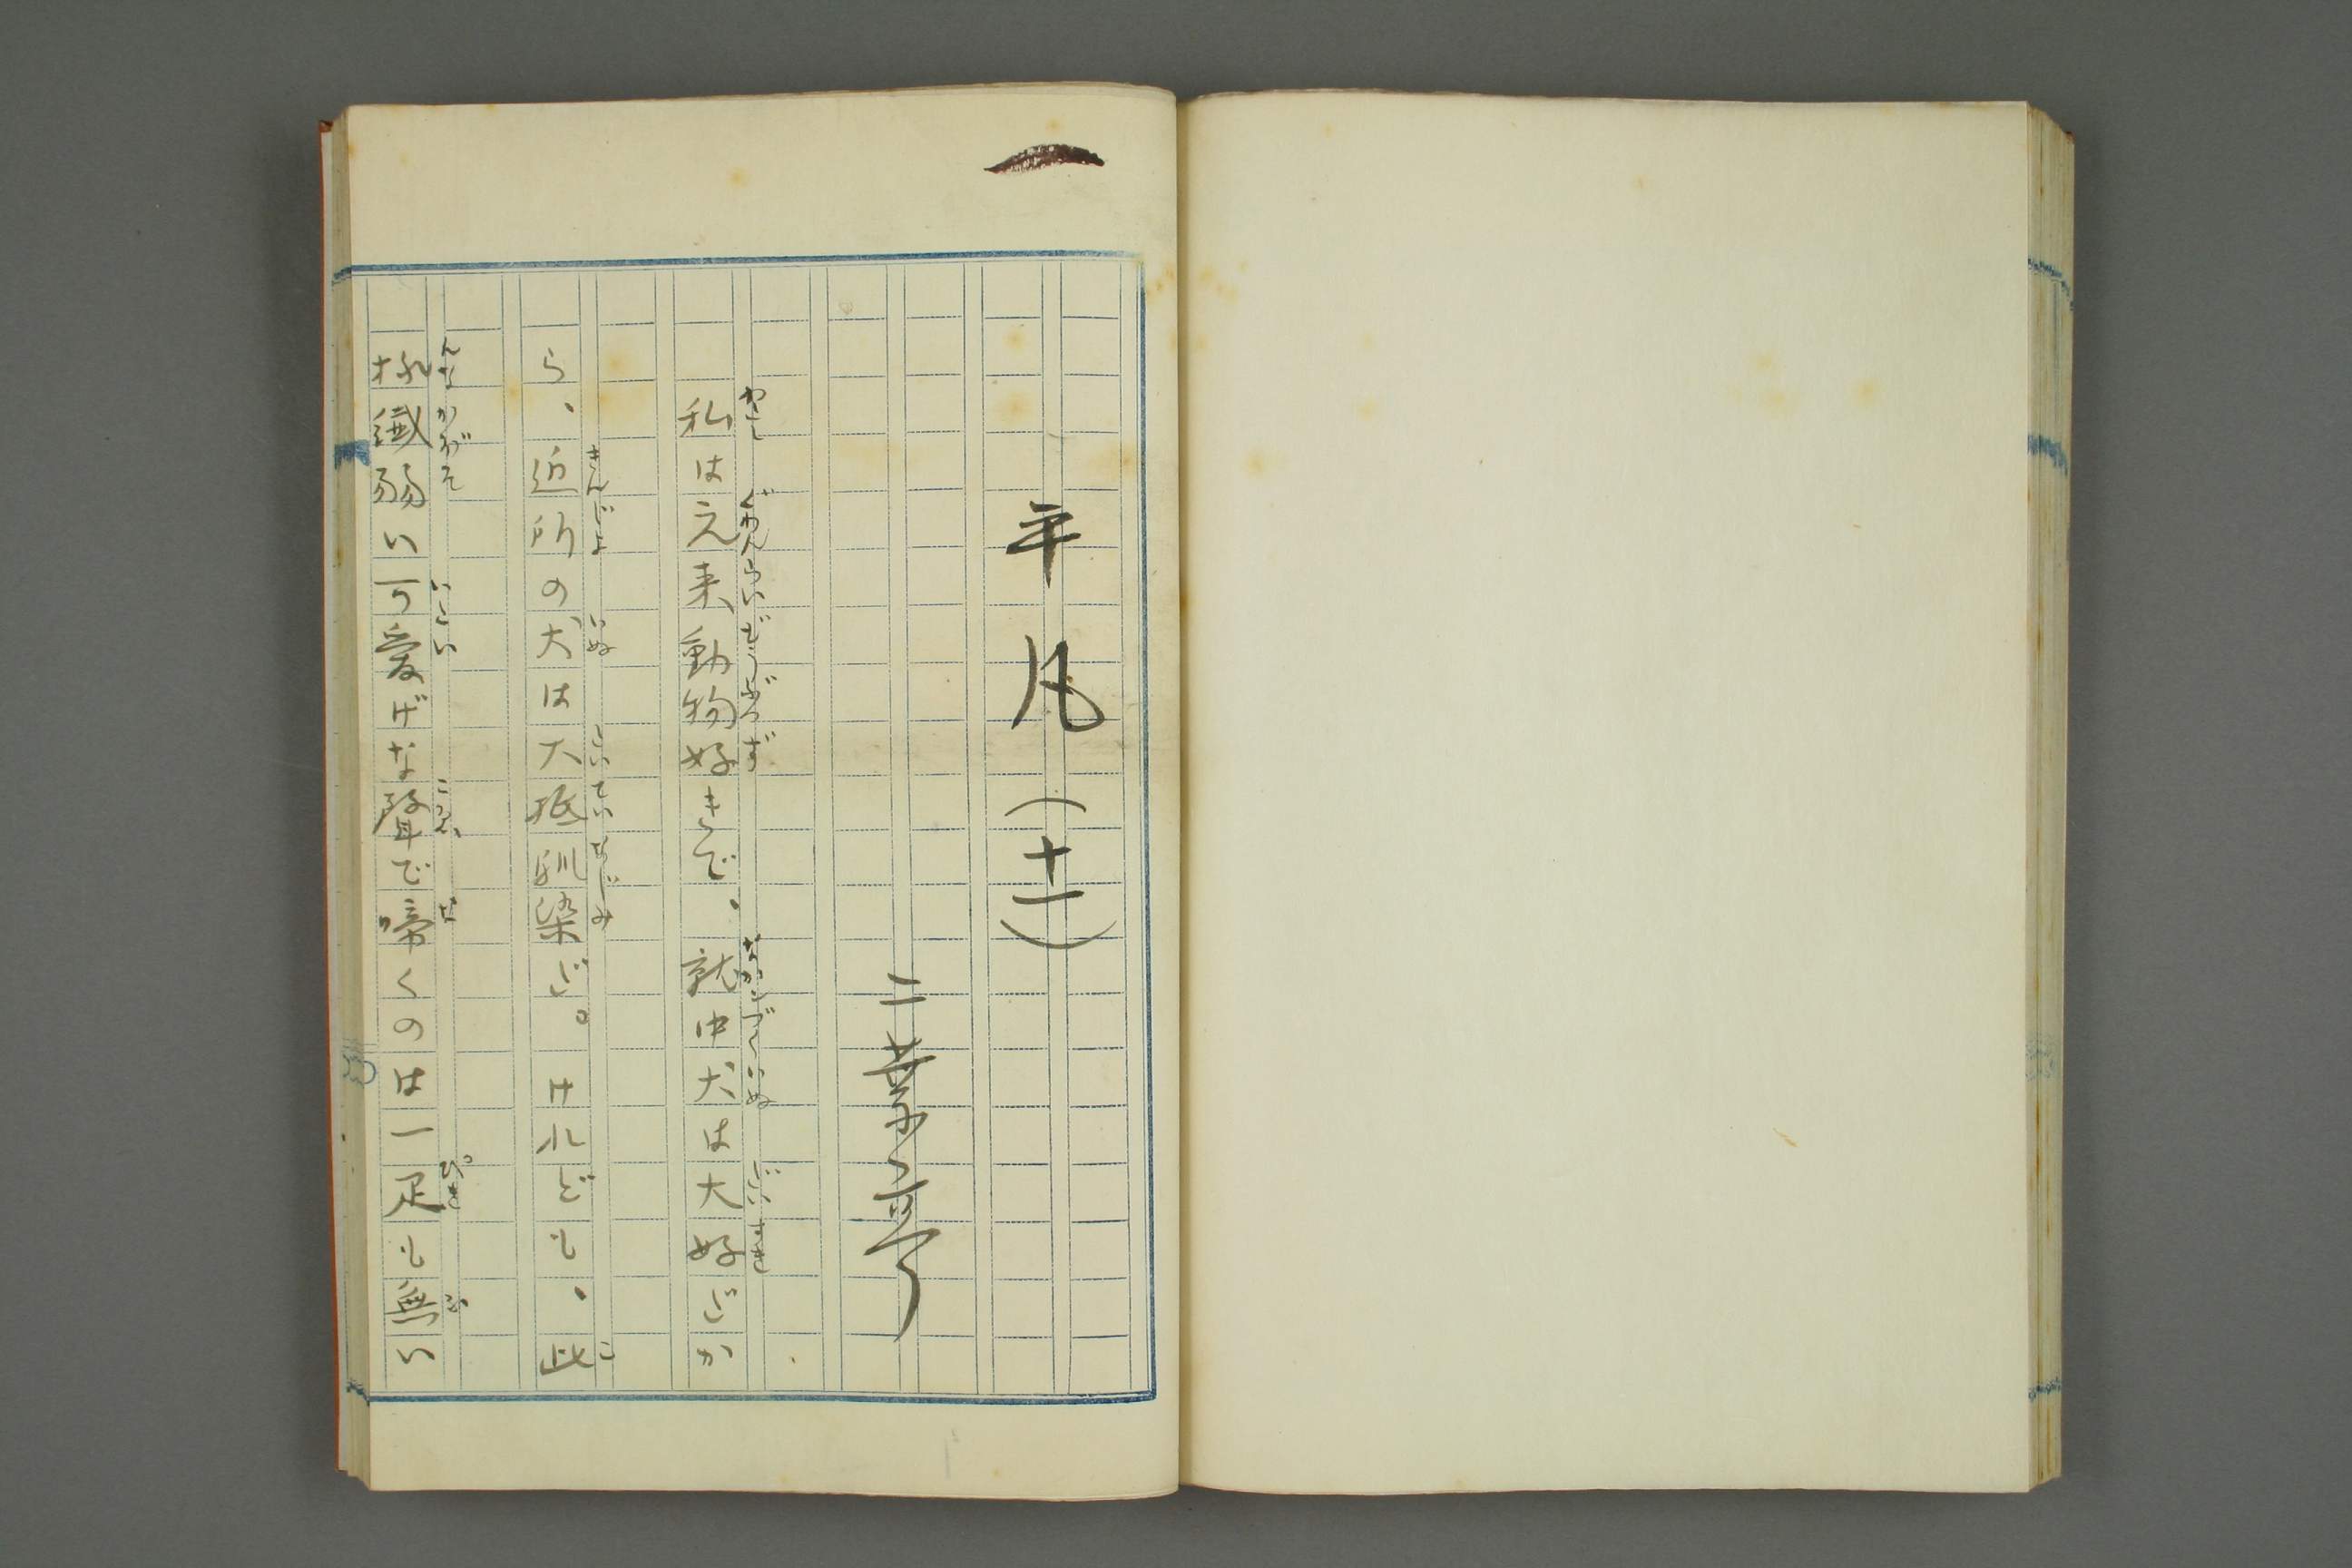 一
平凡（十一）
二葉亭
私は元来動物好きで、就中犬は大好だか
ら、近所の犬は大抵馴染だ。けれども、此
様繊弱い可愛げな聲で啼くのは一疋も無い